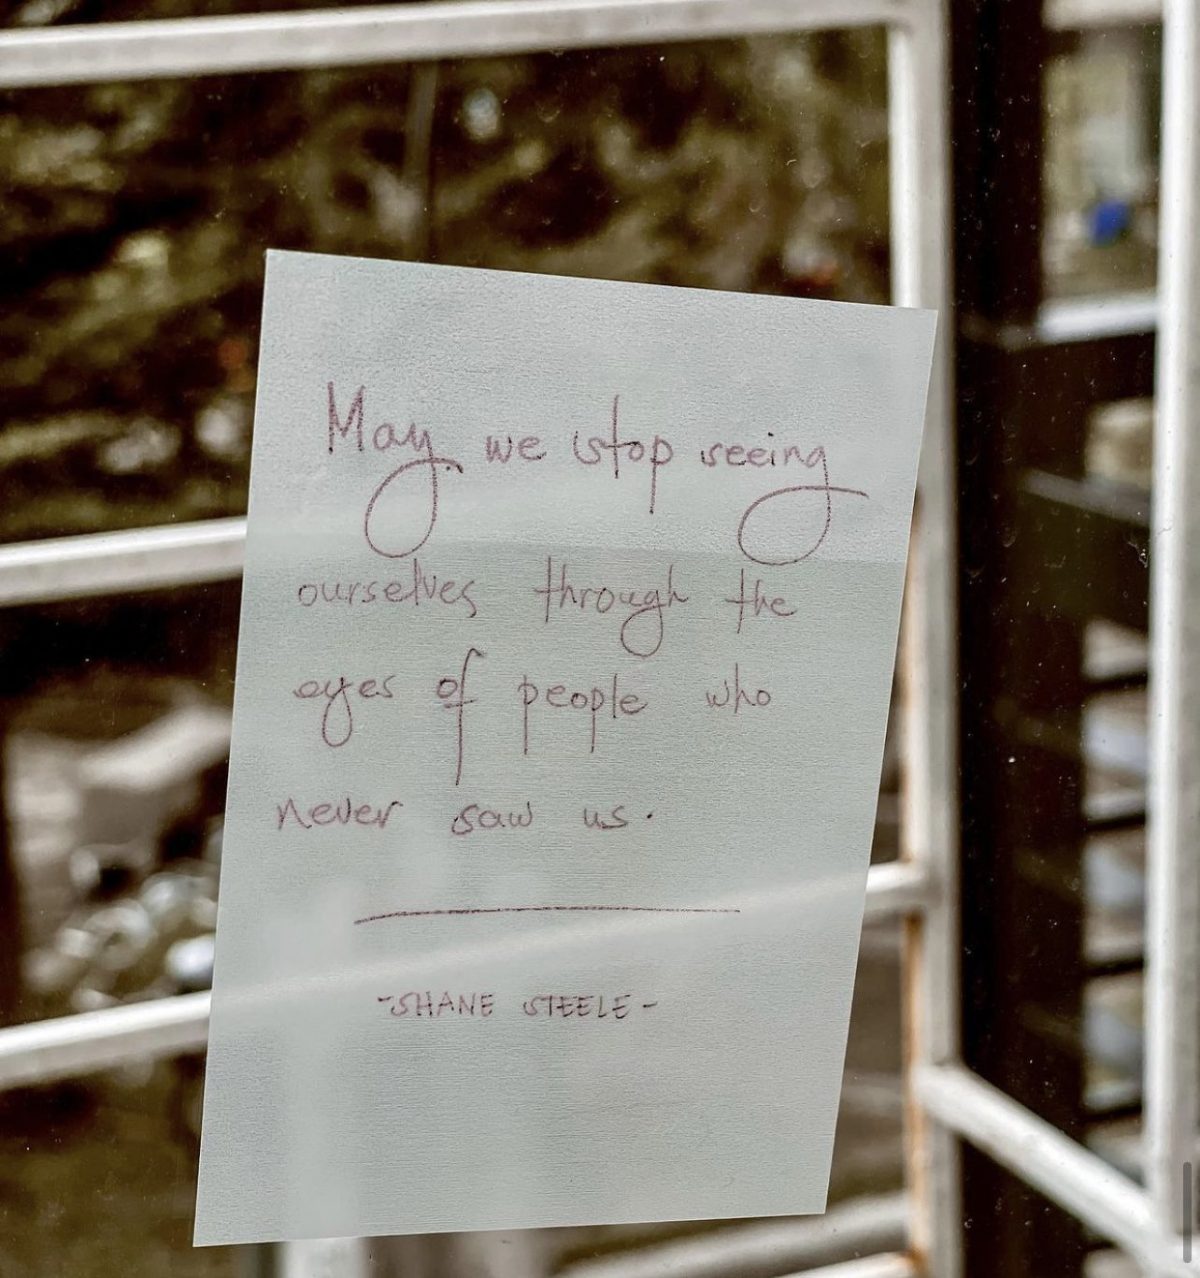 May we stop seeing
ourselves through the
eyes of people who
never saw us.
-SHANE STEELE-